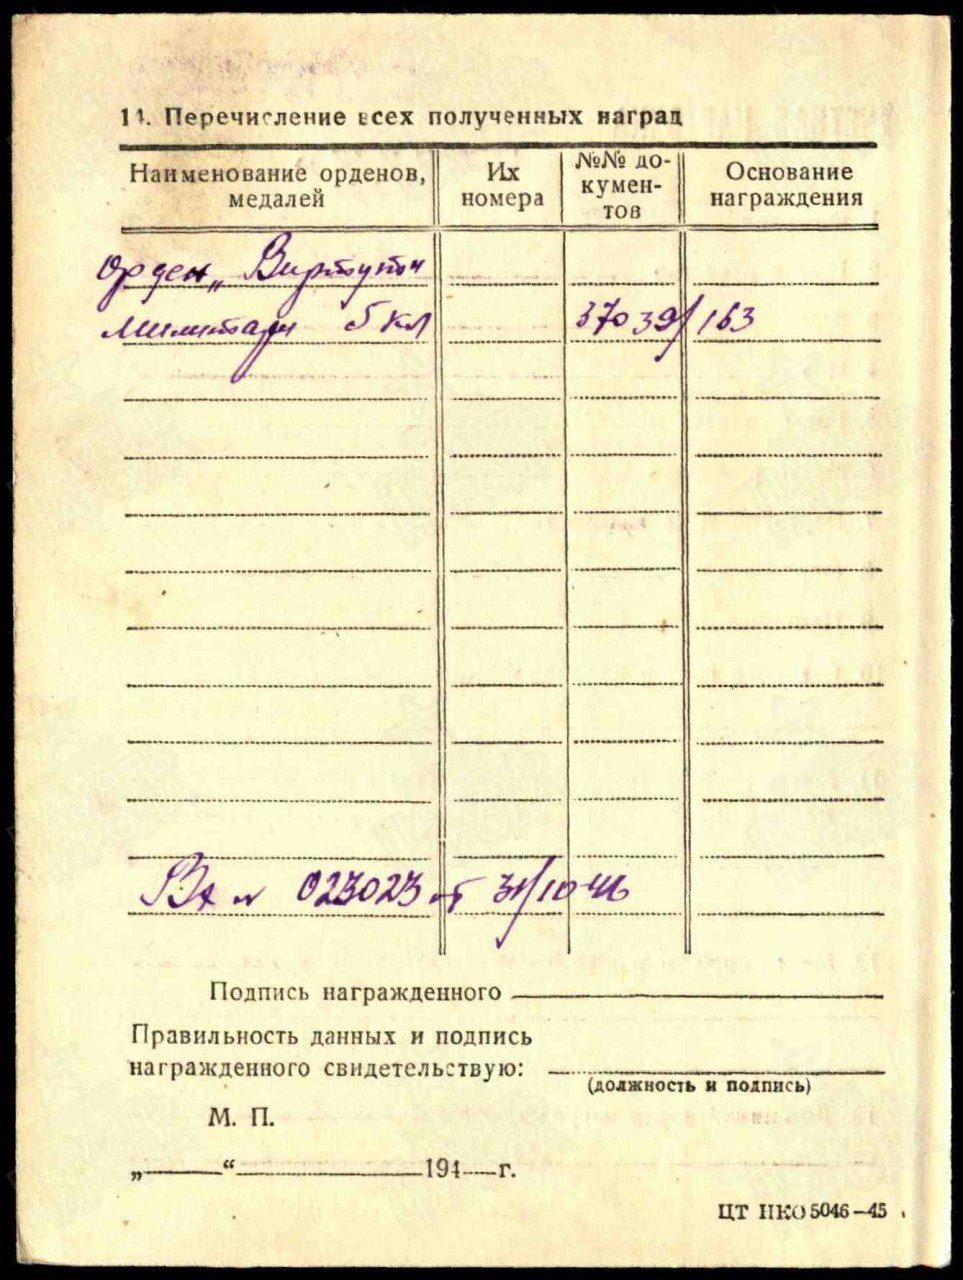 14. Перечисление всех полученных наград
Наименование орденов, медалей
Их номера
№№ документов
Основание награждения
Орден „ Виртути
Милитари 5 кл 37039/163
Вх № 023023 от 31/10 46
Подпись награжденного
Правильность данных и подпись
награжденного свидетельствую:
(должность и подпись)
М. П.
„ “ 194 г.
ЦТ НКО 5046—45